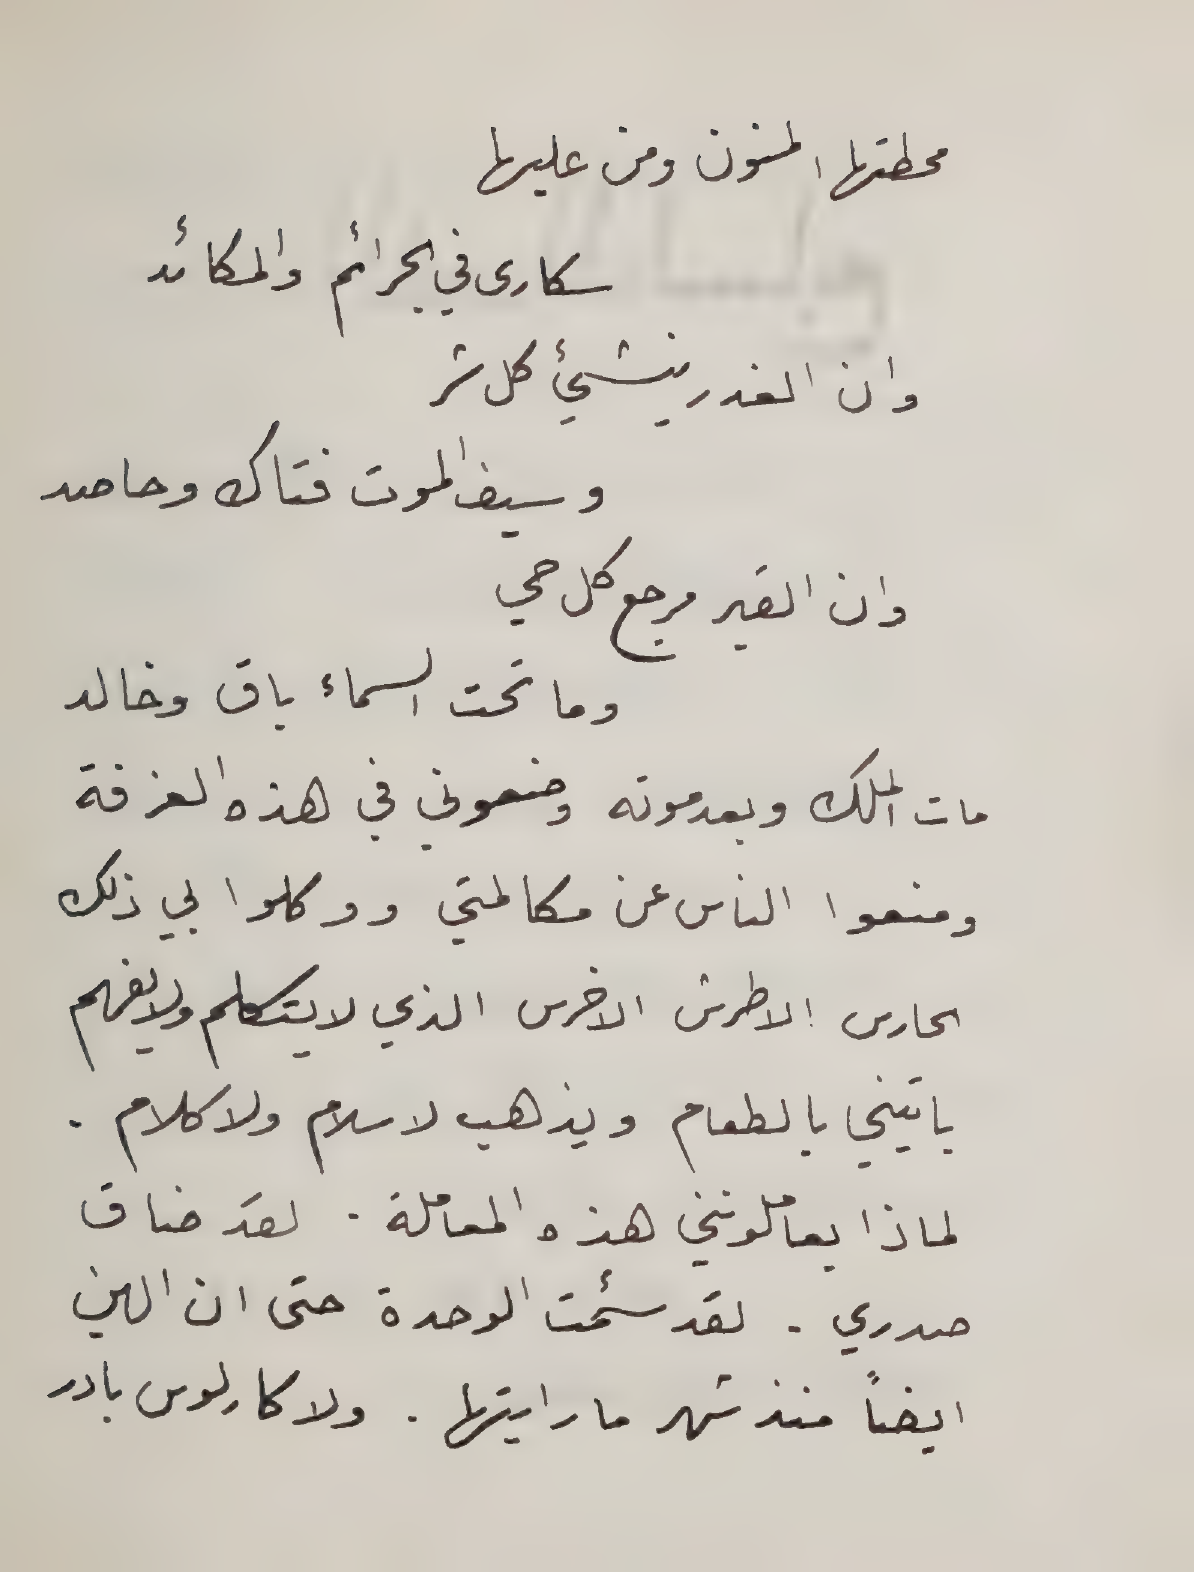 محطتها المنون ومن عليها
سكارى في الجرائم والمكائد
وان الغدر ينشئ كل شر
وسيف الموت فتاك وحاصد
وان القبر مرجع كل حي
وما تحت السماء باق وخالد
مات الملك وبعد موته وضعوني في هذه الغرفة
ومنعوا الناس عن مكالمتي ووكلوا بي ذلك
الحارس الاطرش الاخرس الذي لا يتكلم ولا يفهم
ياتيني بالطعام ويذهب لا سلام ولا كلام .
لماذا يعاملونني هذه المعاملة . لقد ضاق
صدري . لقد سئمت الوحدة حتى ان الين
ايضاً منذ شهر ما رايتها . ولا كارلوس بادر